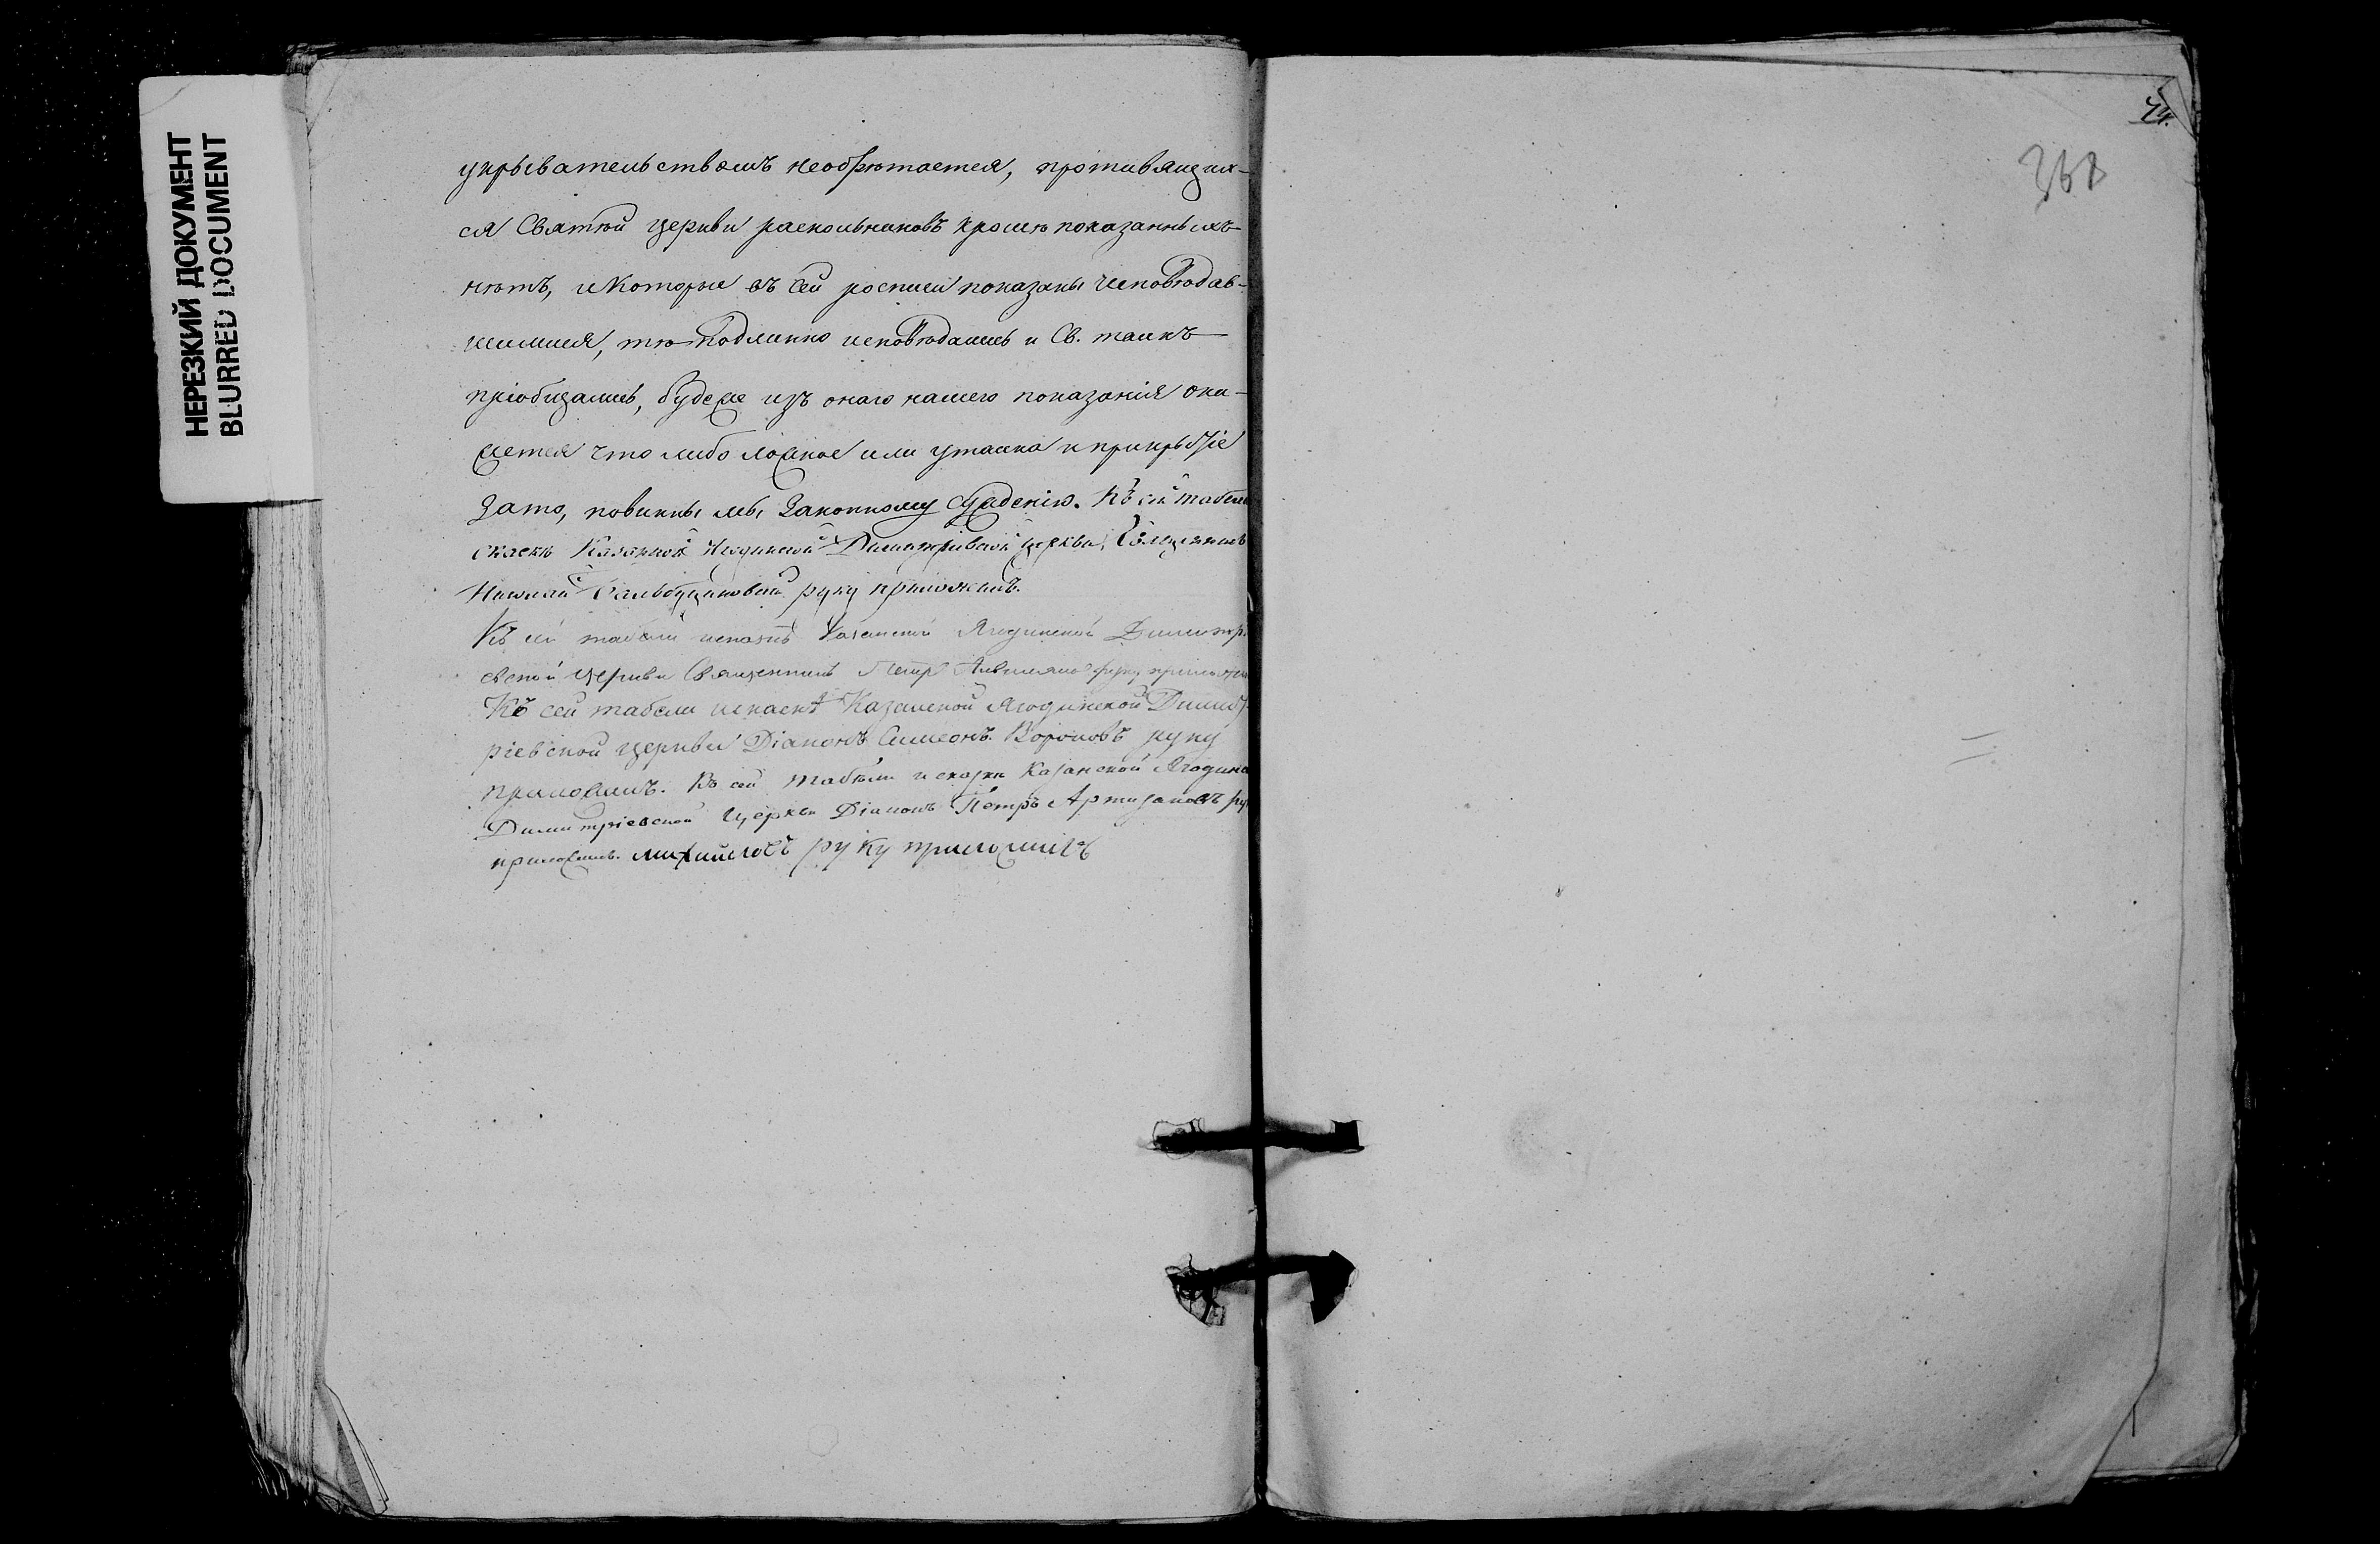 НЕРЕЗКИЙ ДОКУМЕНТ
BLURRED DOCUMENT
укрывательствомъ необрѣтается, противящих-
ся Святой церкви раскольниковъ кромѣ показанныхъ
нѣтъ, и которые въ сей росписи показаны исповѣдав-
шимися, тѣ подлинно исповѣдались и Св. таинъ
пріобщались, будеже изъ онаго нашего показанія ока-
жется что либо ложное или утайка и прикрытіе
за то, повинны мы законному суждению. Къ сей табели
скаскѣ Казанской Ягодинской Димитріевской церкви Священникъ
Николай руку приложилъ.
Къ сей табели Казанской Ягодинской Димитрі
евской церкви Священникъ Петръ руку приложи
Къ сей табели искаскѣ Казанской Ягодинской Димит
ріевской церкви Діаконъ Симеонъ Вороновъ руку
приложилъ. Къ сей табели и сказки Казанской Ягодинс
Димитріевской Церкви Діаконъ Петръ ру
приложилъ. Михайловъ руку приложилъ
368